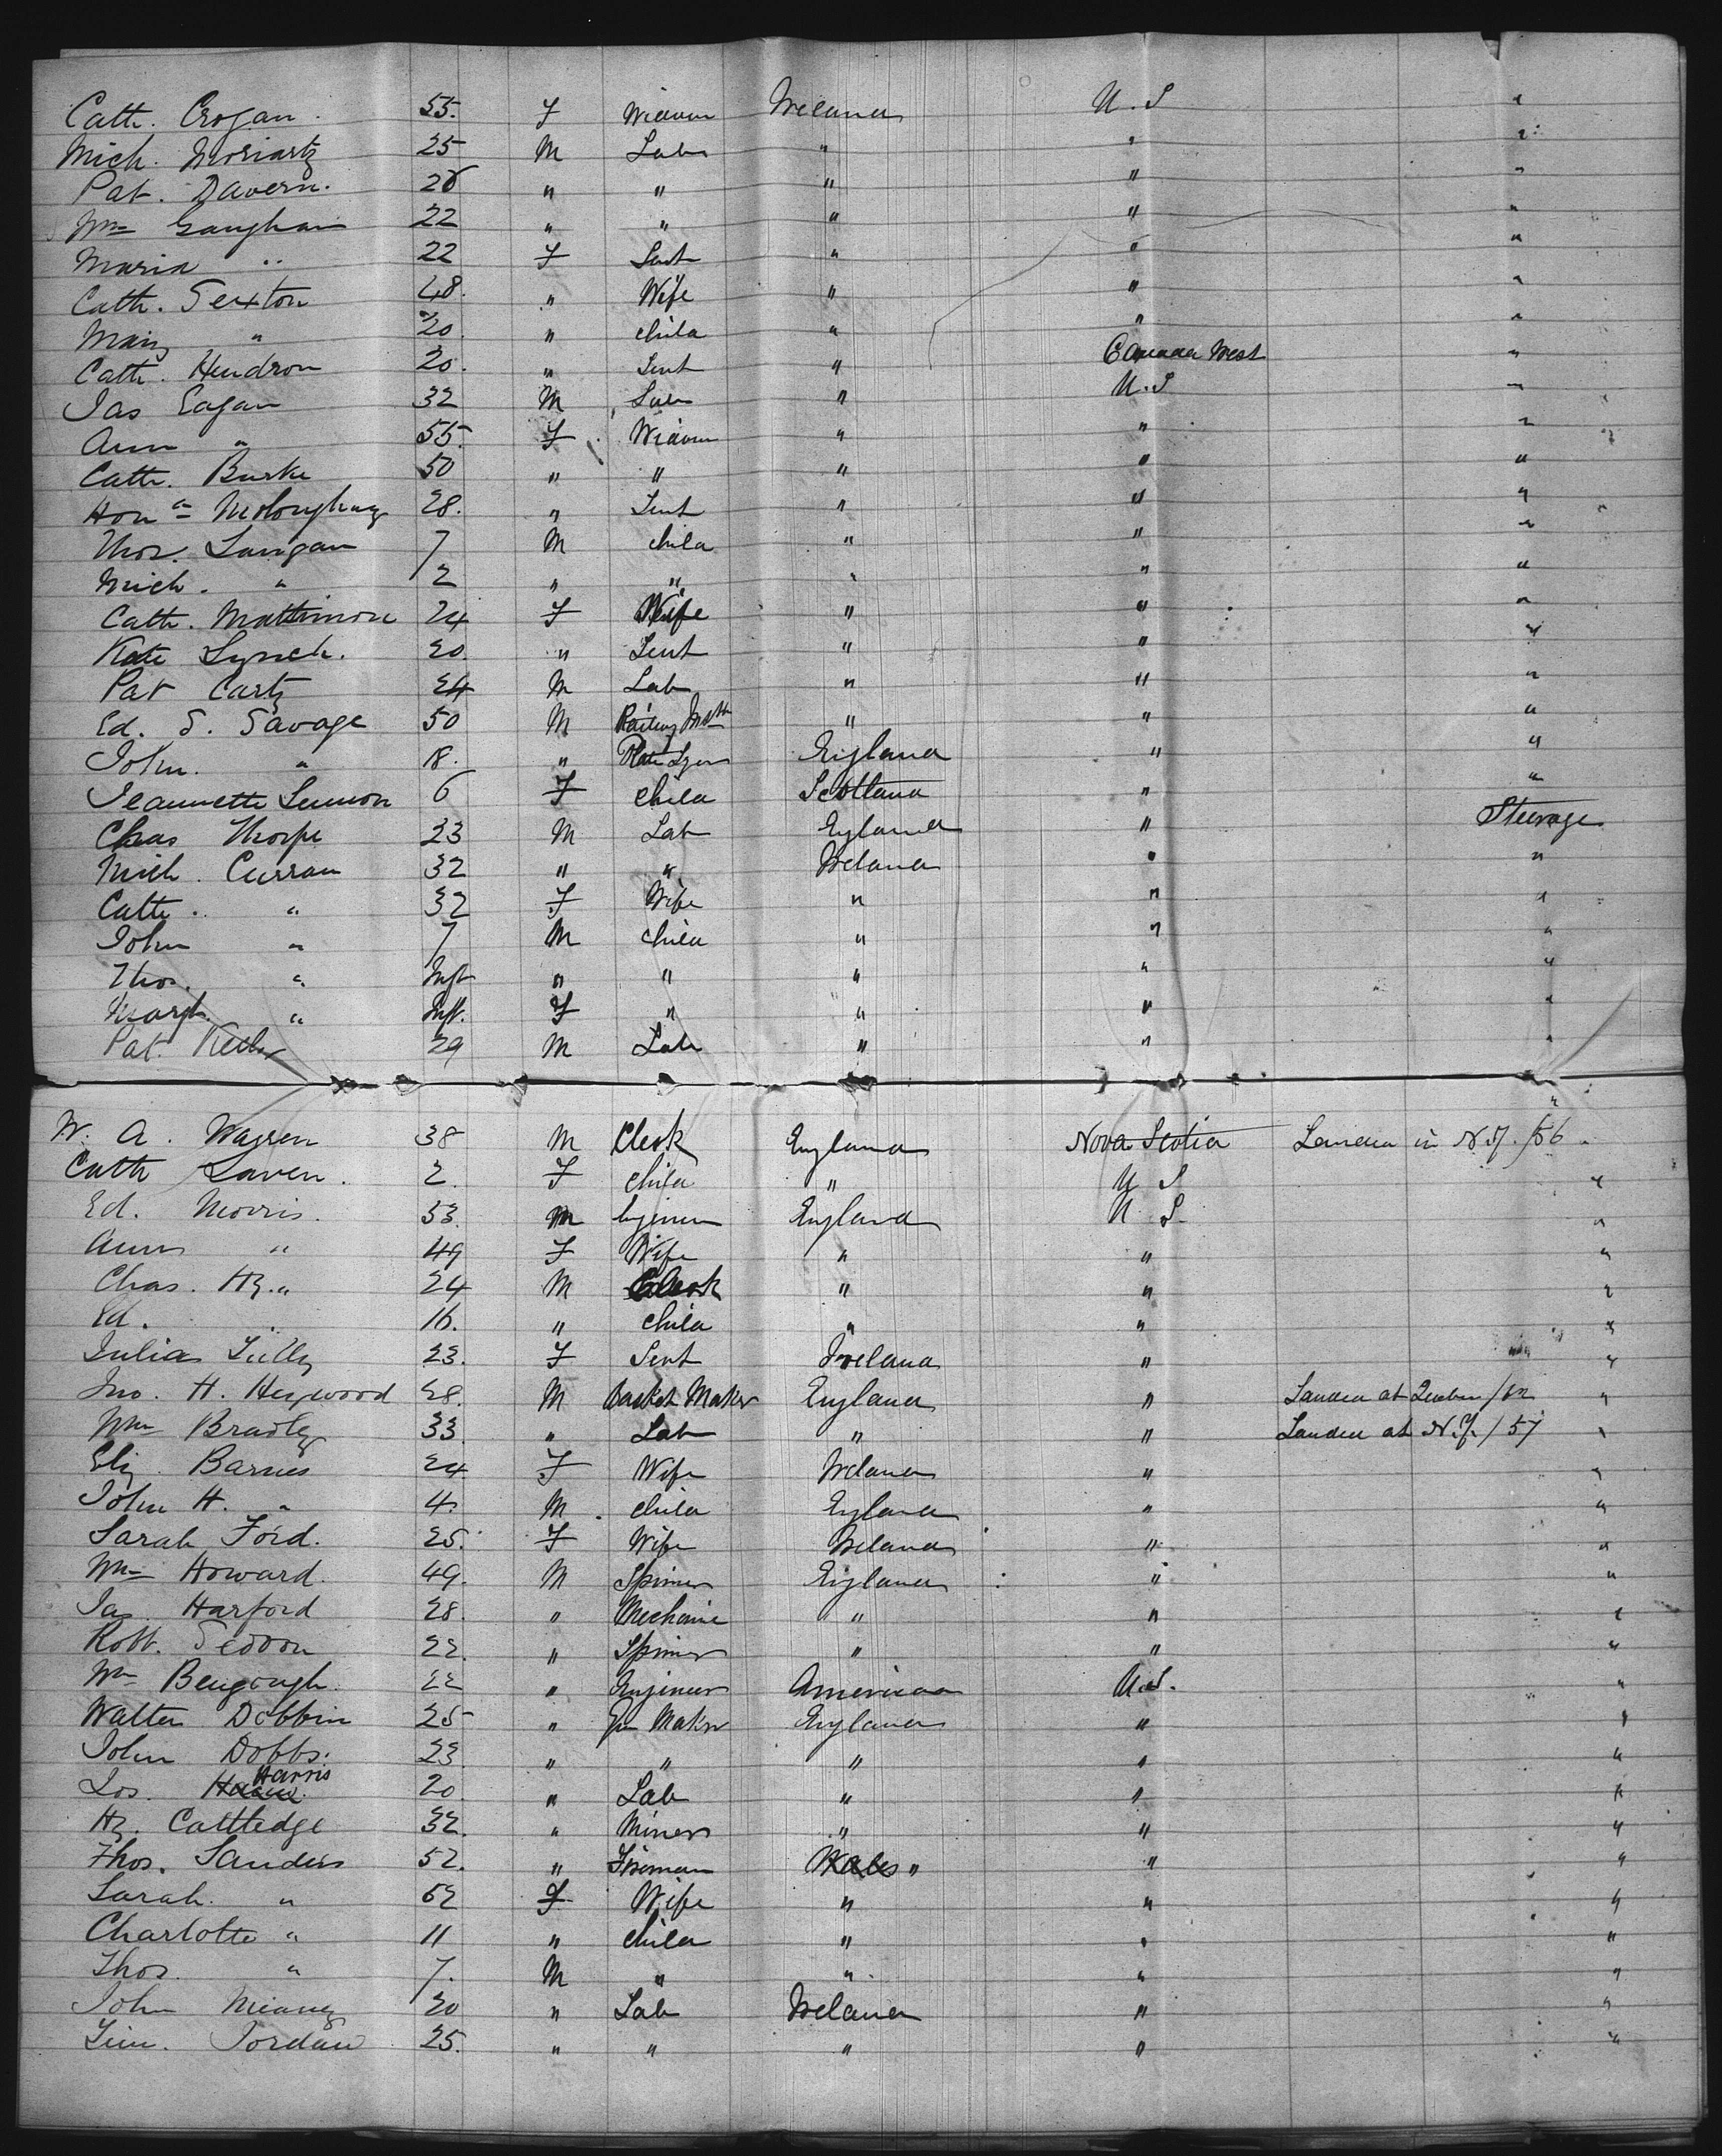 Cath. Crogan. 55. F Widow Ireland U.S "
Mich. Moriarty 25 M Lab " " "
Pat. Davern. 28 " " " " "
Wm Gaughan 22 " " " " "
Maria " 22 F Servt " " "
Cath. Sexton 48. " Wife " " "
Mary " 20. " Child " " "
Cath. Hendron 20. " Servt " Canada West "
Jas Eagan 32 M Lab " U.S "
Ann " 55. F Widow " " "
Cath. Burke 50 " " " " "
Hona 28. " Servt " " "
Thos. Langan 7 M Child " " "
Mich. " 2 " " " " "
Cath. Mattimore 24 F Wife " " "
Kate Lynch. 20. " Servt " " "
Pat Carty 24 M Lab " " "
Ed. S. Savage 50 M Railway " " "
John. " 18. " England " "
Jeannette Lennon 6 F Child Scotland " "
Chas Thorpe 23 M Lab England " Steerage
Mich. Curran 32 " " Ireland " "
Cath. " 32 F Wife " " "
John " 7 M Child " " "
Thos. " Inft " " " " "
Margt. " Inft. F " " " "
Pat. Kelly 29 M Lab " " "
W. A. Warren 38 M Clerk England Nova Scotia Landed in N.Y. /56 "
Cath Laven. 2. F Child " U S "
Ed. Morris. 53. M Engineer England U S. "
Ann " 49 F Wife " " "
Chas. Hy. " 24 M Clerk " " "
Ed. " 16. " Child " " "
Julia Tully 23. F Servt Ireland " "
Jno. H. Heywood 28. M Basket Maker England " Landed at Quebec / "
Wm Bradley 33. " Lab " " Landed at N.Y. /57 "
Eliz. Barnes 24 F Wife Ireland " "
John H. " 4. M Child England " "
Sarah Ford. 25. F Wife Ireland " "
Wm Howard. 49. M Spinner England " "
Jas. Harford 28. " Mechanic " " "
Robt. Seddon 22. " Spinner " " "
Wm Bengough. 22 " Engineer American U.S. "
Walter Dobbin 25 " Gun Maker England " "
John Dobbs. 23 " " " " "
Jos. Harris 20 " Lab " " "
Hy. Cattledge 32. " Miner " " "
Thos. Sanders 52. " Fireman Wales " " "
Sarah. " 52 F Wife " " "
Charlotte " 11 " Child " " "
Thos. " 7. M " " " "
John Meany 20 " Lab Ireland " "
Tim. Jordan 25. " " " " "